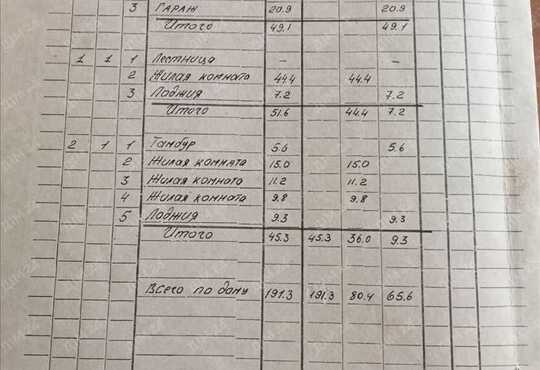 3 Гараж 20.9 20.9
Итого 49.1 49.1
1 1 1 Лестница - -
2 Жилая комната 44.4 44.4
3 Лоджия 7.2 7.2
Итого 51.6 44.4 7.2
2 1 1 Тамбур 5.6 5.6
2 Жилая комната 15.0 15.0
3 Жилая комната 11.2 11.2
4 Жилая комната 9.8 9.8
5 Лоджия 9.3 9.3
Итого 45.3 45.3 36.0 9.3
Всего по дому 191.3 191.3 80.4 65.6